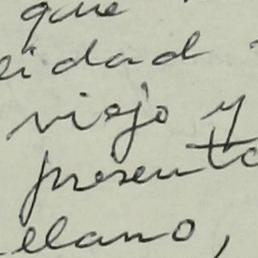 que
eidad
viejo y
presento
ellano,